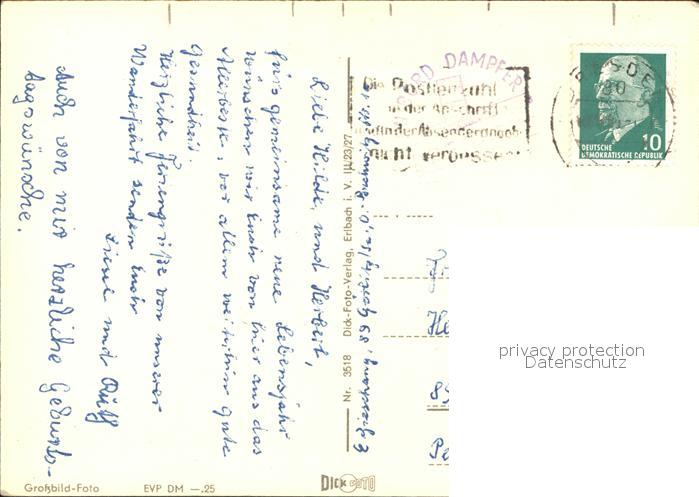 Liebe Hilde, und Herbert,
fürs gemeinsame neue Lebensjahr
wünschen wir Euch von hier aus das
Allerbeste, vor allem weiterhin gute
Gesundheit.
Herzliche Feriengrüße von unserer
Wanderfahrt senden Euch
und Ruth
Auch von mir herzliche Geburts-
tagswünsche.
Großbild-Foto
EVP DM —.25
Nr. 3518 Dick-Foto-Verlag, Erlbach i. V. III/23/27
DICK FOTO
BORD DAMPFER
Die Postleitzahl
in der Anschrift
und in der Absenderangabe
nicht vergessen
DRESDEN
10
DEUTSCHE
DEMOKRATISCHE REPUBLIK
He
privacy protection
Datenschutz